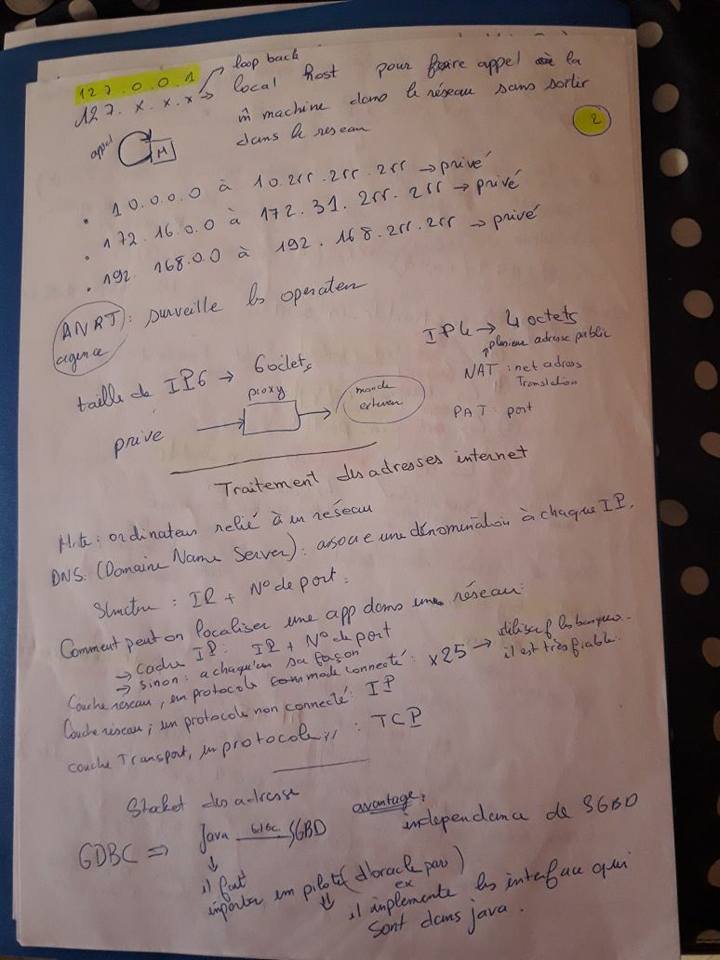 127.0.0.1
127.x.x.x → loop back
local host pour faire appel à la
m̂ machine dans le réseau sans sortir
dans le reseau
2
appel
M
• 10.0.0.0 à 10.255.255.255 → privé
• 172.16.0.0 à 172.31.255.255 → privé
• 192.168.0.0 à 192.168.255.255 → privé
ANRT : surveille les operateu
agence
IP4 → 4 octets
plusieur adresse public
NAT : net adress
Translation
PAT : port
taille de IP6 → 6 octets
privé
proxy
monde
Traitement des adresses internet
Hôte : ordinateur relié à un réseau
DNS (Domaine Name Server) : associe une dénomination à chaque IP.
Structure : IP + N° de port.
Comment peut on localiser une app dans un réseau :
→ Cadre IP : IP + N° de port
→ sinon : a chaqu'un sa façon
Couche reseau, un protocole connecté : x25 → utiliser p les banques.
il est très fiable.
Couche réseau, un protocole non connecté : IP
couche Transport, un protocole " : TCP
des adresse
GDBC ⇒ Java SGBD
avantage :
independance de SGBD
il faut
importer un pilote (d'oracle par
ex)
⇓ il implemente les interface qui
sont dans java.